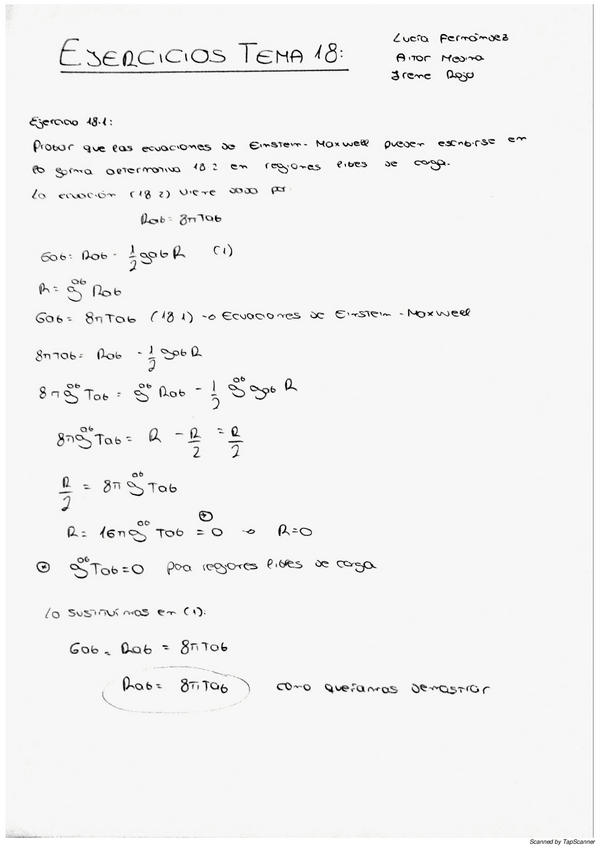 EJERCICIOS TEMA 18:
Lucía Fernández
Aitor
Irene Rojo
Ejercicio 18.1:
Probar que las ecuaciones de Einstein-Maxwell pueden escribirse en
la forma alternativa 18.2 en regiones libres de carga.
La ecuación (18.2) viene dada por:
Rab = 8πTab
Gab = Rab - 1/2 gab R (1)
R = g^ab Rab
Gab = 8πTab (18.1) → Ecuaciones de Einstein-Maxwell
8πTab = Rab - 1/2 gab R
8π g^ab Tab = g^ab Rab - 1/2 g^ab gab R
8π g^ab Tab = R - R/2 = R/2
R/2 = 8π g^ab Tab
R = 16π g^ab Tab =^⊛ 0 → R=0
⊛ g^ab Tab = 0 para regiones libres de carga
Lo sustituimos en (1):
Gab = Rab = 8πTab
Rab = 8πTab como queríamos demostrar
Scanned by TapScanner